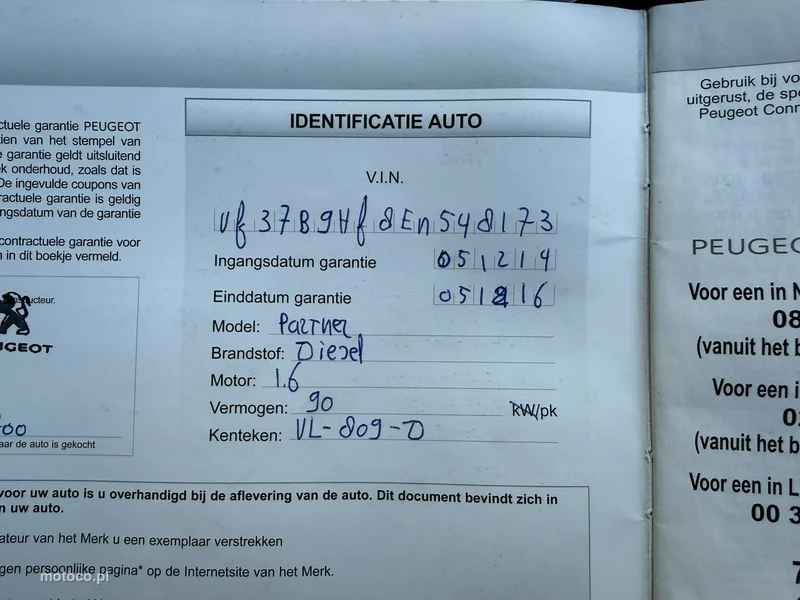 ctuele garantie PEUGEOT
ien van het stempel van
e garantie geldt uitsluitend
k onderhoud, zoals dat is
De ingevulde coupons van
ractuele garantie is geldig
ngsdatum van de garantie
contractuele garantie voor
n in dit boekje vermeld.
nstructeur.
UGEOT
00
aar de auto is gekocht
IDENTIFICATIE AUTO
V.I.N.
Vf37B9Hf8En548173
Ingangsdatum garantie 051214
Einddatum garantie 051216
Model: Partner
Brandstof: Diesel
Motor: 1.6
Vermogen: 90 RW/pk
Kenteken: VL-809-D
voor uw auto is u overhandigd bij de aflevering van de auto. Dit document bevindt zich in
n uw auto.
ateur van het Merk u een exemplaar verstrekken
gen persoonlijke pagina* op de Internetsite van het Merk.
motoco.pl
Gebruik bij vo
uitgerust, de spe
Peugeot Conn
PEUGEO
Voor een in N
08
(vanuit het b
Voor een i
02
(vanuit het b
Voor een in L
00 3
7